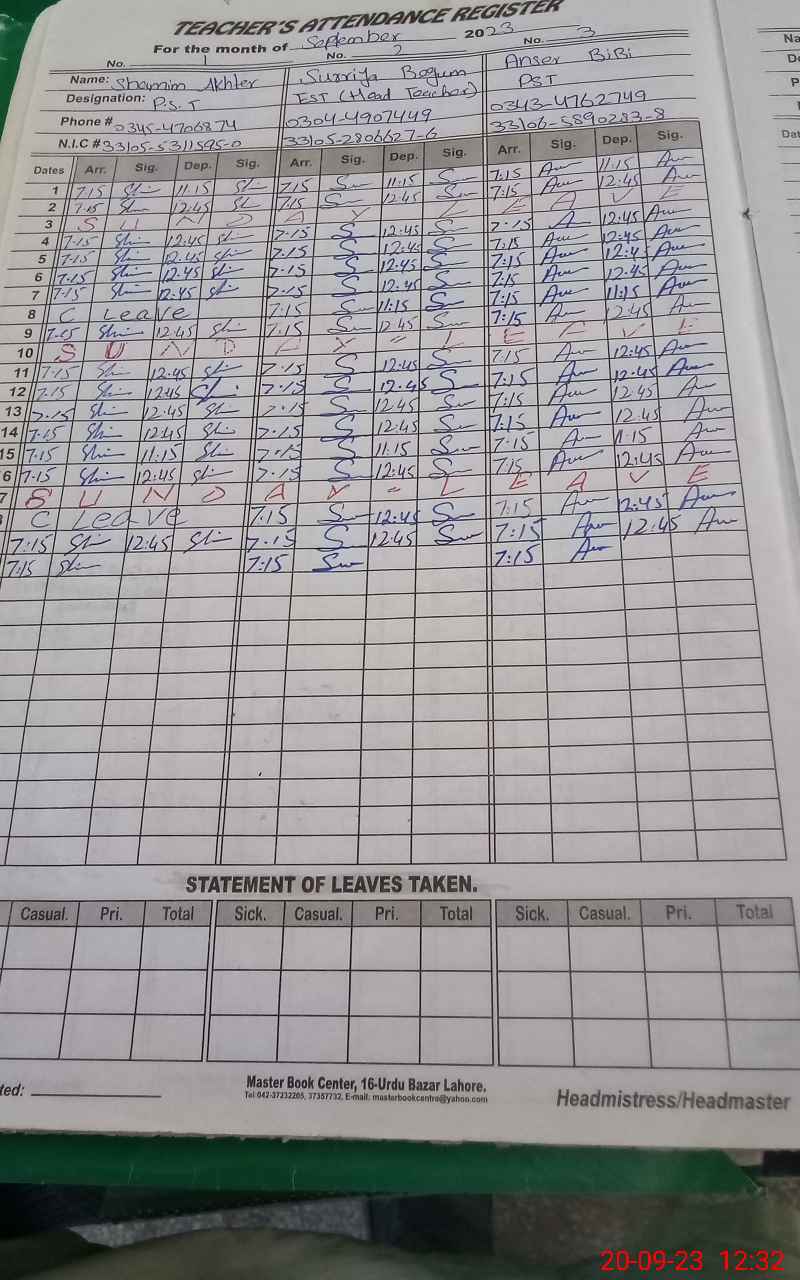 TEACHER'S ATTENDANCE REGISTER
For the month of September 2023
No. 1 No. 2 No. 3
Name: Shamim Akhter Surriya Begum Anser BiBi
Designation: P.S.T EST (Head Teacher) PST
Phone # 0345-4706874 0304-4907449 0343-4762749
N.I.C # 33105-5311595-0 33105-2806627-6 33106-5890283-8
Dates Arr. Sig. Dep. Sig. Arr. Sig. Dep. Sig. Arr. Sig. Dep. Sig.
1 7:15 11:15 7:15 11:15 7:15 11:15
2 7:15 12:45 7:15 12:45 7:15 12:45
3 S U N D A Y L E A V E
4 7:15 12:45 7:15 12:45 7:15 12:45
5 7:15 12:45 7:15 12:45 7:15 12:45
6 7:15 12:45 7:15 12:45 7:15 12:4
7 7:15 12:45 7:15 12:45 7:15 12:45
8 C Leave 7:15 11:15 7:15 11:15
9 7:15 12:45 7:15 12:45 7:15 12:45
10 S U N D A Y = L E A V E
11 7:15 12:45 7:15 12:45 7:15 12:45
12 7:15 12:45 7:15 12:45 7:15 12:45
13 7:15 12:45 7:15 12:45 7:15 12:45
14 7:15 12:45 7:15 12:45 7:15 12:45
15 7:15 11:15 7:15 11:15 7:15 11:15
6 7:15 12:45 7:15 12:45 7:15 12:45
7 S U N D A Y = L E A V E
C Leave 7:15 12:45 7:15 12:45
7:15 12:45 7:15 12:45 7:15 12:45
7:15 7:15 7:15
STATEMENT OF LEAVES TAKEN.
Casual. Pri. Total Sick. Casual. Pri. Total Sick. Casual. Pri. Total
ted:
Master Book Center, 16-Urdu Bazar Lahore.
Tel:042-37232205, 37357732, E-mail: masterbookcentre@yahoo.com
Headmistress/Headmaster
20-09-23 12:32